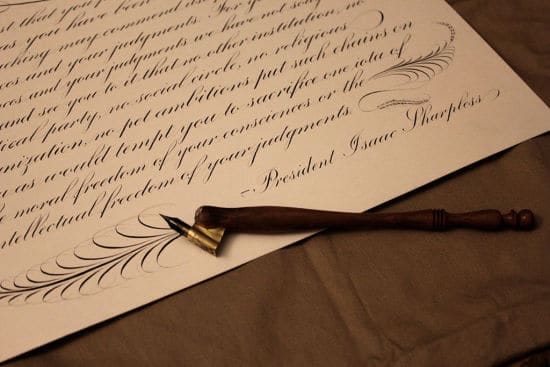 st that you
as you have been
king may commend its
ces and your judgments. For yo
nces and your judgments we have not soug
and see you to it that no other institution, no
ical party, no social circle, no religious
nization, no pet ambitions put such chains on
as would tempt you to sacrifice one iota of
moral freedom of your consciences or the
ntellectual freedom of your judgments.
- President Isaac Sharpless